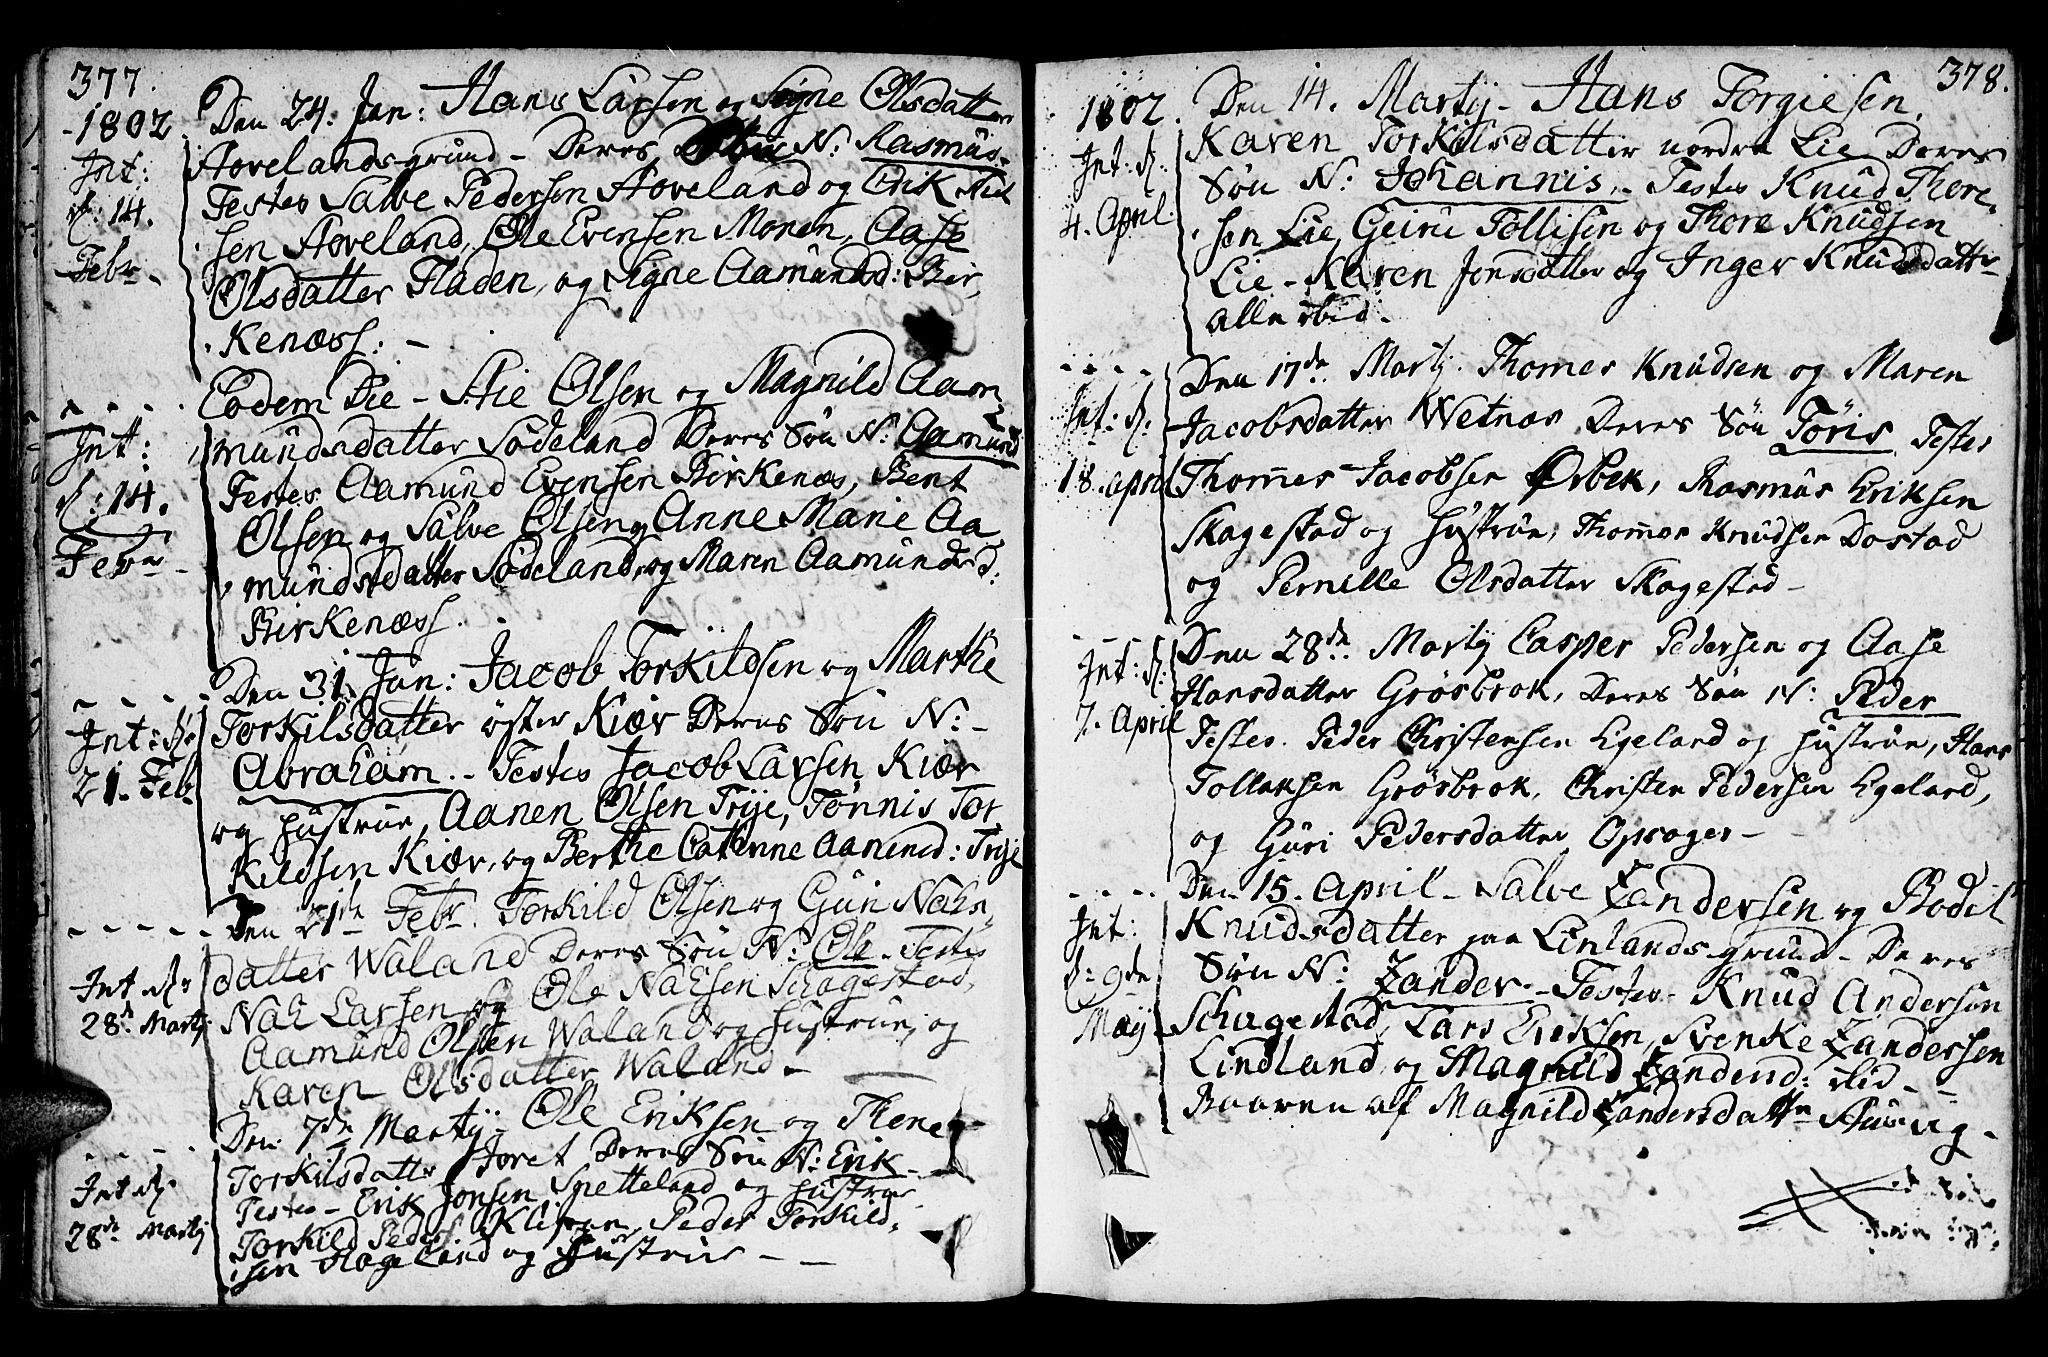 377.
-1802.
Den 24. Jan: Hans Larsen og Signe Olsdatter
Aavelands-grund - Deres Søn N: Rasmus.
Testes Salve Pedersen Aaveland og Erik Niel
sen Aaveland, Ole Evensen Monen, Aase
Olsdatter Fladen, og Signe Aamundsd: Bir,
Kenæss: -
Int:
d: 14.
Febr -
Eodem Die - Stie Olsen og Magnild Aam
mundsdatter Sødeland Deres Søn N: Aamund
Testes Aamund Evensen Birkenæs, Bent
Olsen og Salve Olsen og Anne Marie Aa,
mundsdatter Sødeland, og Maren Aamundsd:
Birkenæss.
Int:
d: 14.
Febr -
Den 31. Jan: Jacob Torkildsen og Marthe
Torkilsdatter øster Kiær Deres Søn N: -
Abraham. - Testes Jacob Larsen Kiær
og Hustrue, Aanen Olsen Trije, Tønnis Tor
Kildsen Kiær, og Berthe Catrinne Aanensd: Trije
Int: d:
21. Feb
Den 21de Febr. Torkild Olsen og Guri Nahs
datter Waland Deres Søn N: Ole - Testes
Nah Larsen og Ole Nahsen Schagestad,
Aamund Olsen Waland og Hustrue, og
Karen Olsdatter Waland -
Int d:
28de Martij
Den 7de Martij - Ole Eriksen og Thene
Torkilsdatter Joret Deres Søn N: Erik -
Testes - Erik Jonsen Spetteland og Hustrue
Torkild Peders. Klip Peder Torkild,
sen Hageland og Hustrue -
Int d:
28de Martij
378.
1802.
Den 14. Martij - Hans Torgiesen
Karen Torkilsdatter nordre Lie Deres
Søn N: Johannis. - Testes Knud Thore,
sen Lie, Geiru Tollisen og Thore Knudsen
Lie - Karen Jonsdatter og Inger Knudsdatter
alle ibid -
Int: d:
4. April.
Den 17de Martij. Thomes Knudsen og Maren
Jacobsdatter Wetnes, Deres Søn Tøris, Testes
Thommes Jacobsen Ørbek, Rasmus Eriksen
Skagestad og Hustrue, Thommes Knudsen Dostad
og Pernille Olsdatter Skagestad -
Int: d:
18. April
Den 28de Martij Casper Pedersen og Aase
Hansdatter Grøsbrok, Deres Søn N: Peder
Testes. Peder Christensen Egeland og Hustrue, Hans
Tollaksen Grøsbrok, Christen Pedersen Egeland,
og Guri Pedersdatter Opsager -
Int: d:
7. April
Den 15. April - Salve Zandersen og Bodil
Knudsdatter paa Linlands-grund - Deres
Søn N: Zander - Testes - Knud Andersen
Schagestad, Lars Eriksen, Svenke Zandersen
Lindland, og Magnild Zandersd: ibid -
Baaren af Magnild Zandersdatter
Int:
d: 9de
Maij